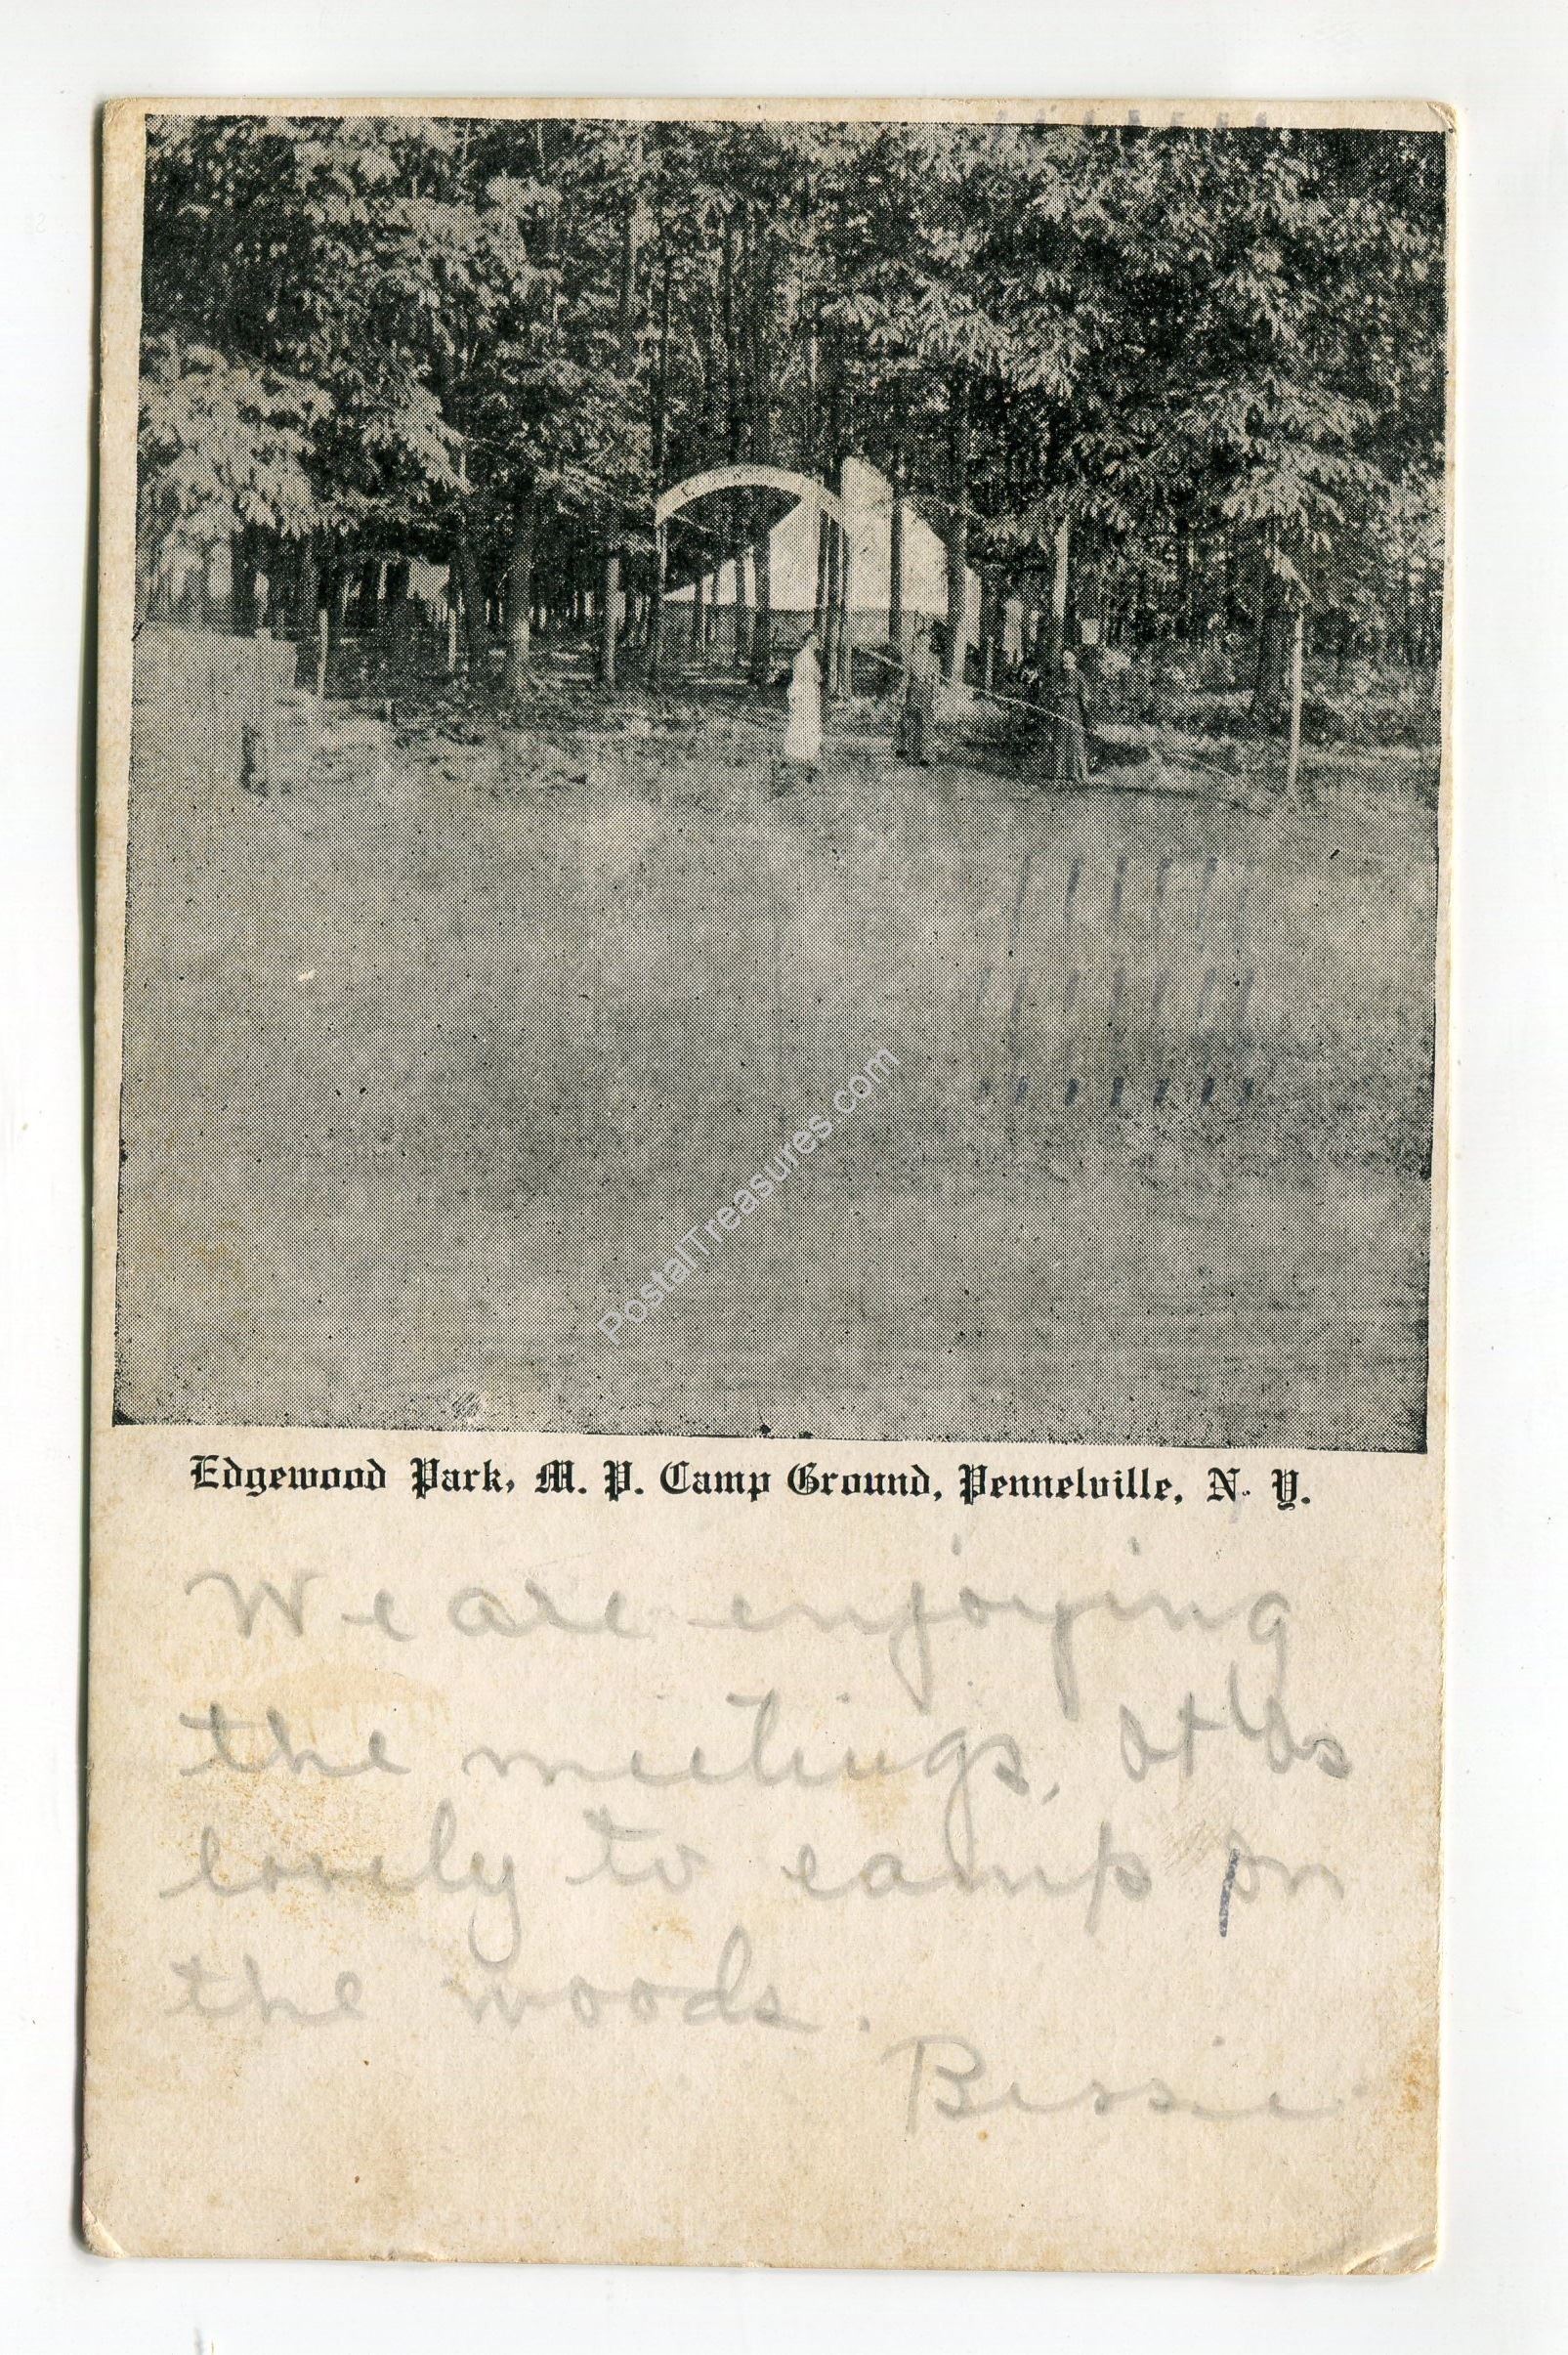 PostalTreasures.com
Edgewood Park, M. P. Camp Ground, Pennelville, N. Y.
We are enjoying
the meetings. It is
lovely to camp in
the woods.
Bessie